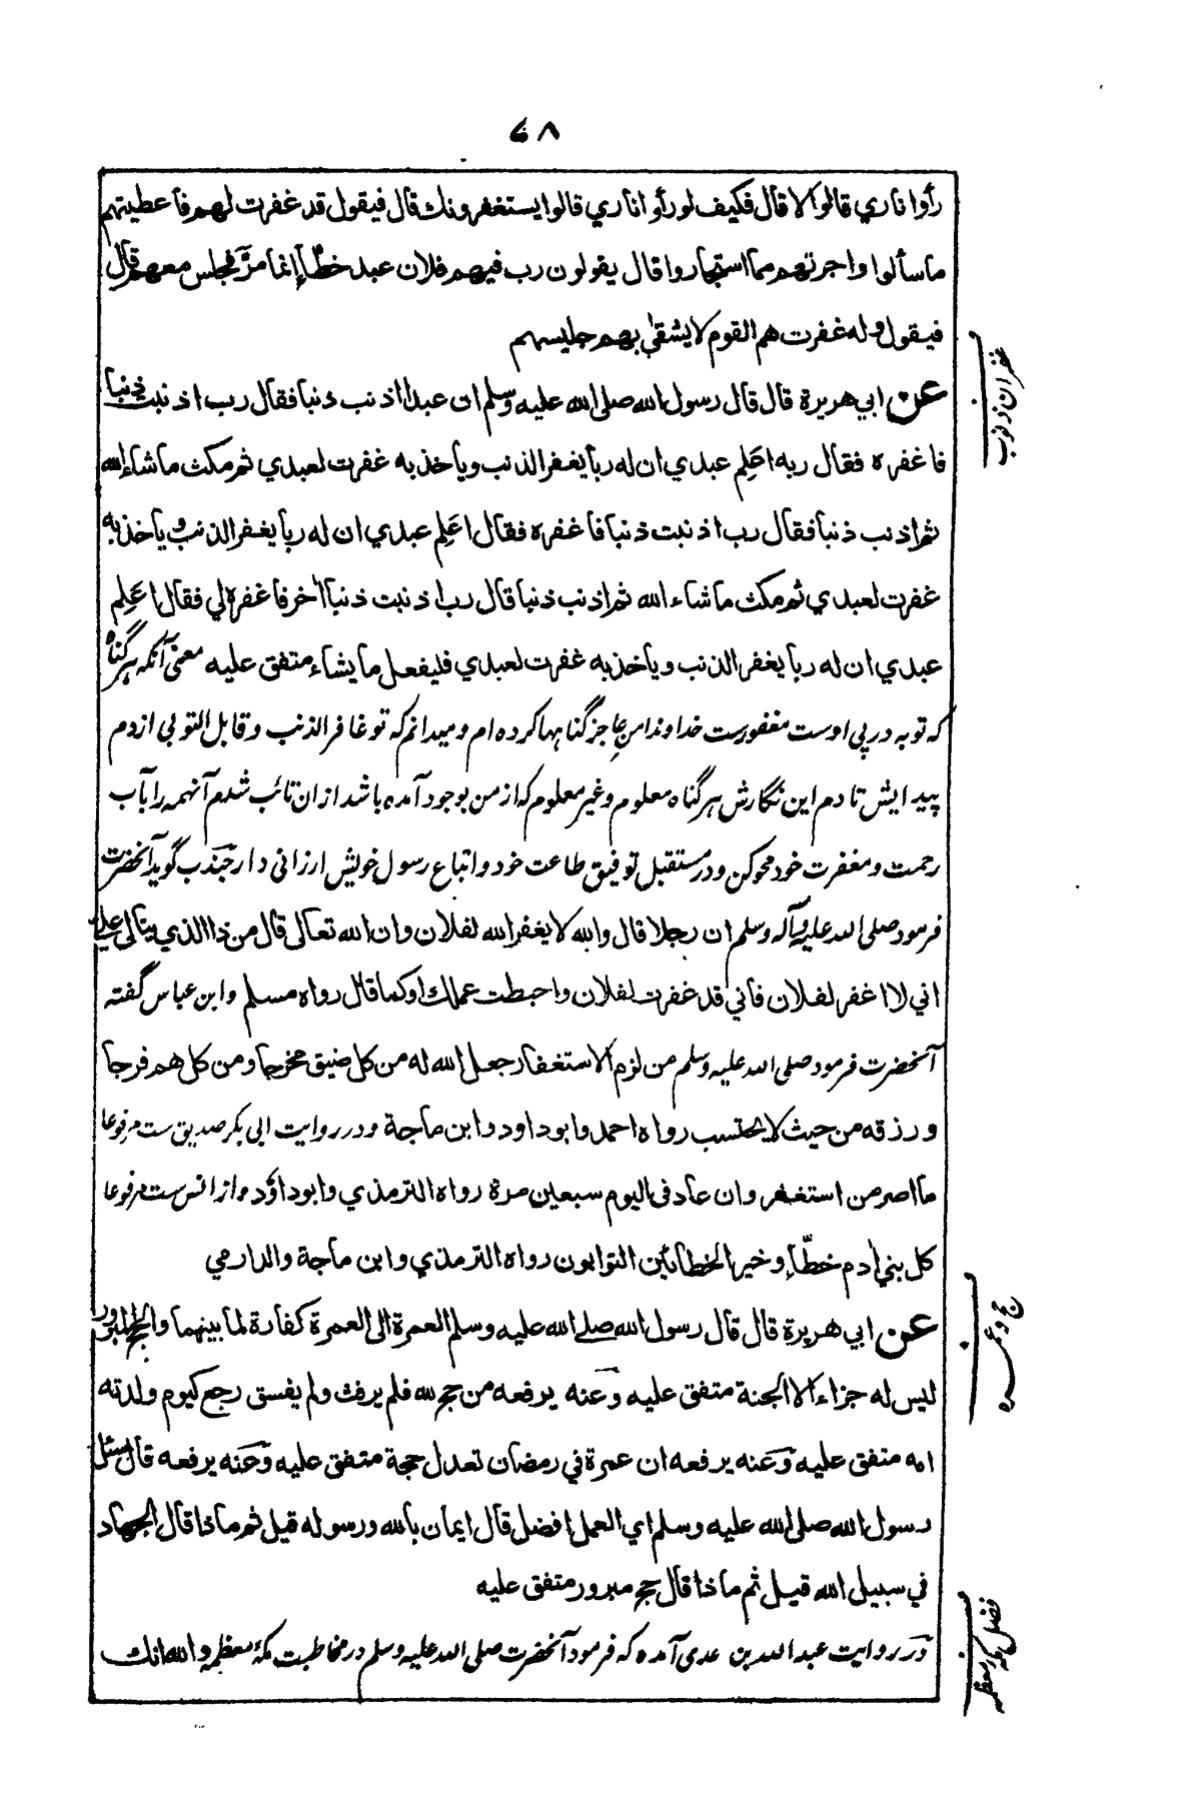 ٦٨
رأوا ناري قالوا لا قال فكيف لو رأوا ناري قالوا يستغفرونك قال فيقول قد غفرت لهم فاعطيتهم
ما سألوا واجرتهم مما استجاروا قال يقولون رب فيهم فلان عبد خطّاءٌ إنما مرّ فجلس معهم قال
فيقول وله غفرت هم القوم لا يشقى بهم جليسهم
غفران ذنوب
عن ابي هريرة قال قال رسول الله صلى الله عليه وسلم ان عبدا اذنب ذنبا فقال رب اذنبت ذنبا
فاغفره فقال ربه اعَلِم عبدي ان له ربا يغفر الذنب وياخذ به غفرت لعبدي ثم مكث ما شاء الله
ثم اذنب ذنبا فقال رب اذنبت ذنبا فاغفره فقال اعَلِم عبدي ان له ربا يغفر الذنب وياخذ به
غفرت لعبدي ثم مكث ما شاء الله ثم اذنب ذنبا قال رب اذنبت ذنبا اٰخر فاغفره لي فقال اعَلِم
عبدي ان له ربا يغفر الذنب وياخذ به غفرت لعبدي فليفعل ما يشاء متفق عليه معنى آنكه هر گناه
که توبه در پی اوست مغفورست خداوندا من عاجز گناہها کرده ام و میدانم که تو غافر الذنب و قابل التوبی از دم
پیدایش تا دم این نگارش هر گناه معلوم و غیر معلوم که از من بوجود آمده باشد ازان تائب شدم آنهمه را بآب
رحمت و مغفرت خود محو کن و در مستقبل توفیق طاعت خود و اتباع رسول خویش ارزانی دار جندب گوید آنحضرت
فرمود صلی الله علیه وآله وسلم ان رجلا قال والله لا يغفر الله لفلان وان الله تعالى قال من ذا الذي يتالى علي
اني لا اغفر لفلان فاني قد غفرت لفلان واحبطت عملك او كما قال رواه مسلم وابن عباس گفته
آنحضرت فرمود صلی الله علیه وسلم من لزم الاستغفار جعل الله له من كل ضيق مخرجا ومن كل هم فرجا
ورزقه من حيث لا يحتسب رواه احمد وابو داود وابن ماجة ودر روایت ابی بکر صدیق ست مرفوعا
ما اصر من استغفر وان عاد في اليوم سبعين مرة رواه الترمذي وابو داؤد واز انس ست مرفوعا
كل بني اٰدم خطّاء وخير الخطائين التوابون رواه الترمذي وابن ماجة والدارمي
حج و عمره
عن ابي هريرة قال قال رسول الله صلے الله عليه وسلم العمرة الى العمرة كفارة لما بينهما والحج المبرور
ليس له جزاء الا الجنة متفق عليه وعنه يرفعه من حج لله فلم يرفث ولم يفسق رجع كيوم ولدته
امه متفق عليه وعنه يرفعه ان عمرة في رمضان تعدل حجة متفق عليه وعنه يرفعه قال سئل
رسول الله صلى الله عليه وسلم اي العمل افضل قال ايمان بالله ورسوله قيل ثم ماذا قال الجهاد
في سبيل الله قيل ثم ماذا قال حج مبرور متفق عليه
فضل مکه معظمه
در روایت عبد الله بن عدی آمده که فرمود آنحضرت صلی الله علیه وسلم در مخاطبت مکۂ معظمه والله انك